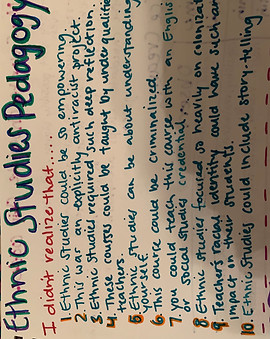 Ethnic Studies Pedagogy
I didn't realize that.....
1. Ethnic Studies could be so empowering.
2. This was an explicitly anti-racist project.
3. Ethnic studies required such deep reflection.
4. These courses could be taught by under qualified
teachers.
5. Ethnic studies can be about understanding
yourself.
6. This course could be criminalized.
7. You could teach this course with an English
or social studies credential.
8. Ethnic studies focused so heavily on
9. Teacher's racial identity could have such an
impact on their students.
10. Ethnic Studies could include story-telling